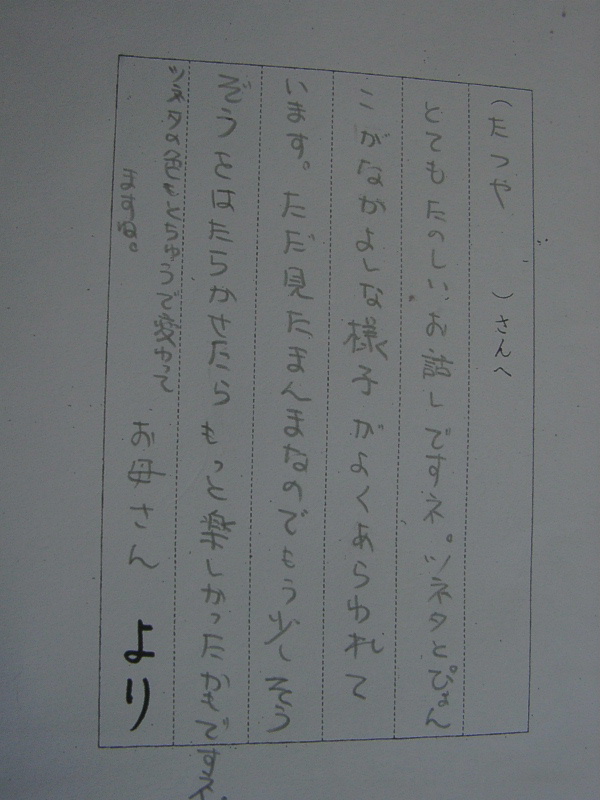 （たつや　）さんへ
とてもたのしいお話しですネ。ツネタとぴょん
こがなかよしな様子がよくあらわれて
います。ただ見たまんまなのでもう少しそう
ぞうをはたらかせたらもっと楽しかったかもですネ。
ツネタの色もとちゅうで変わって
ますヨ。
お母さん　より